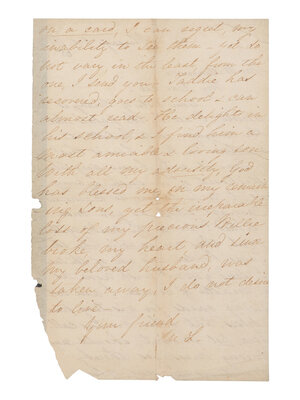 on a card, I can regret, my
inability to see them - yet do
not vary, in the least, from the
one, I send you. Taddie has
goes to school - can
almost read - the delight in
his school, & I find him a
most amiable & loving son
With all my adversity, God
has blessed me, in my
ing sons, yet the
loss of my precious Willie
broke my heart and since
my beloved husband, was
taken away, I do not desire
to live.
Your friend
M L.